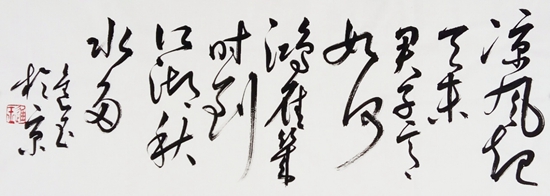 凉风起
天末
君子意
如何
鸿雁几
时到
江湖秋
水多
于京